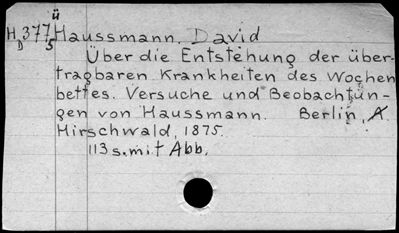 ü
H 3775 Haussmann, David
D
Über die Entstehung der über-
tragbaren Krankheiten des Wochen
bettes. Versuche und Beobachtun-
gen von Haussmann. Berlin, A.
Hirschwald, 1875.
113 s. mit Abb.